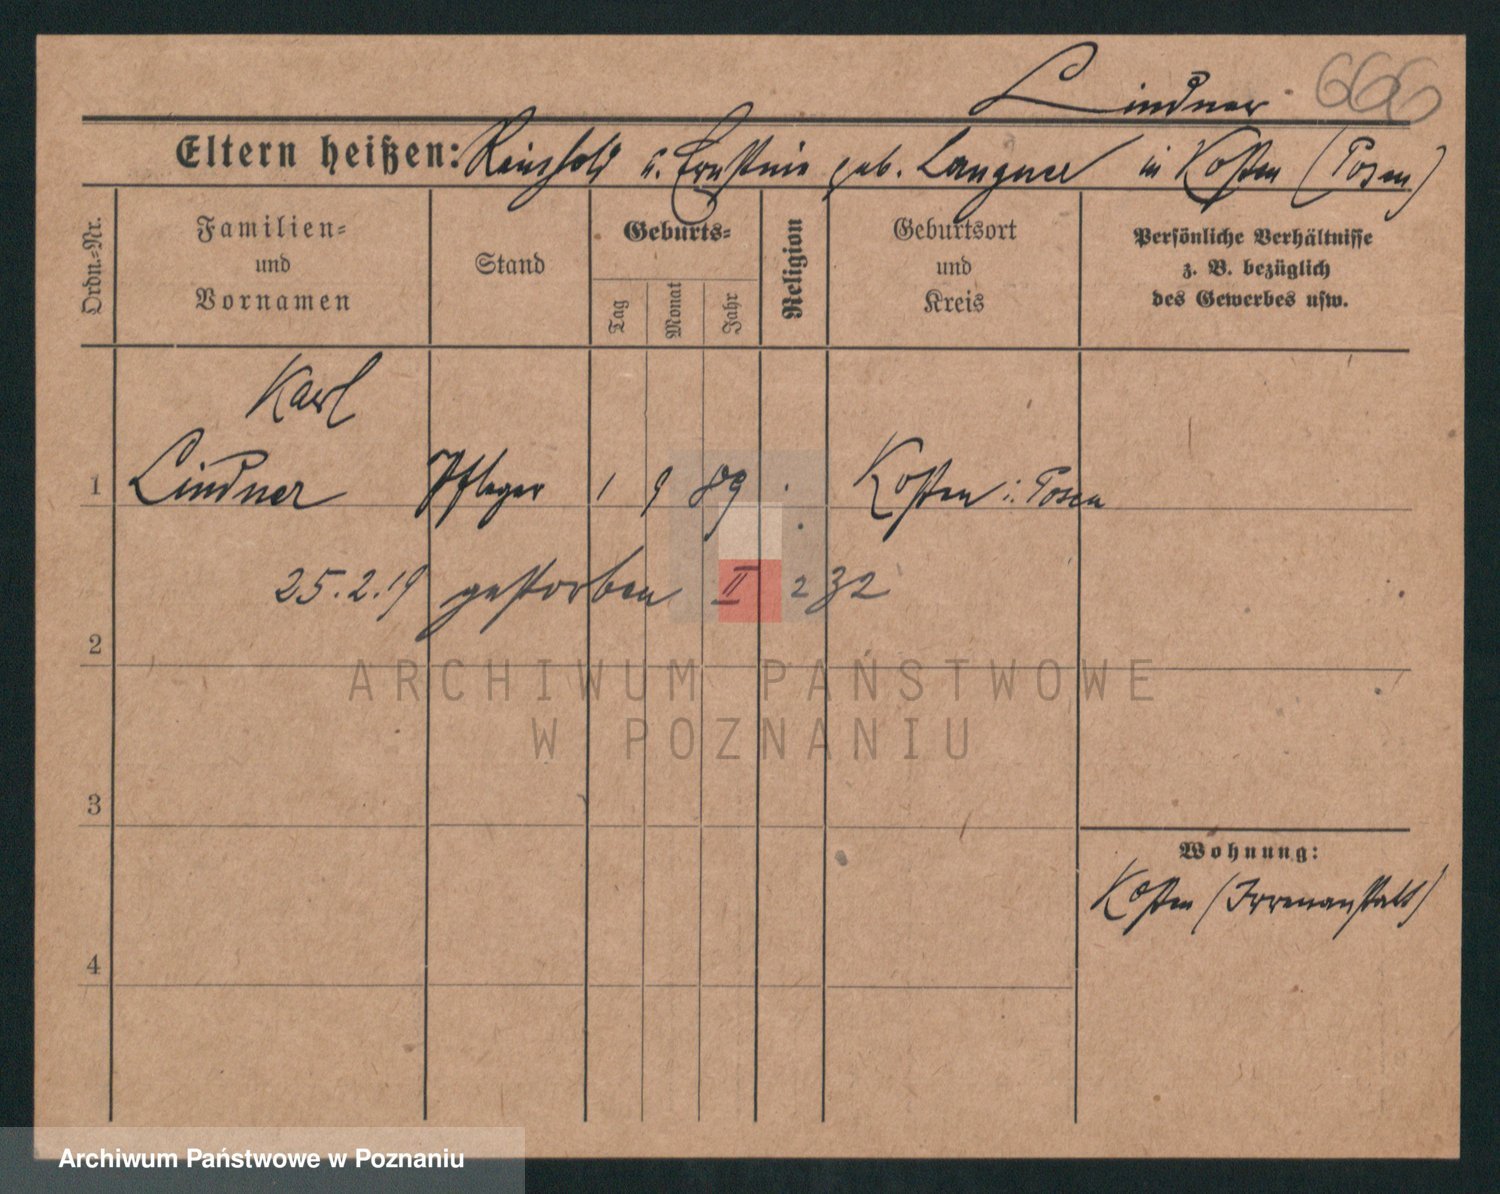 Lindner 666
Eltern heißen: Reinhold u. Ernstine geb. Langner in Kosten (Posen)
Ordn.-Nr.
Familien-
und
Vornamen
Stand
Geburts-
Tag
Monat
Jahr
Religion
Geburtsort
und
Kreis
Persönliche Verhältnisse
z. B. bezüglich
des Gewerbes usw.
Karl
1 Lindner Pfleger 1 9 89 Kosten i. Posen
25.2.19 gestorben II 232
2
ARCHIWUM PAŃSTWOWE
W POZNANIU
3
Wohnung:
Kosten (Irrenanstalt)
4
Archiwum Państwowe w Poznaniu